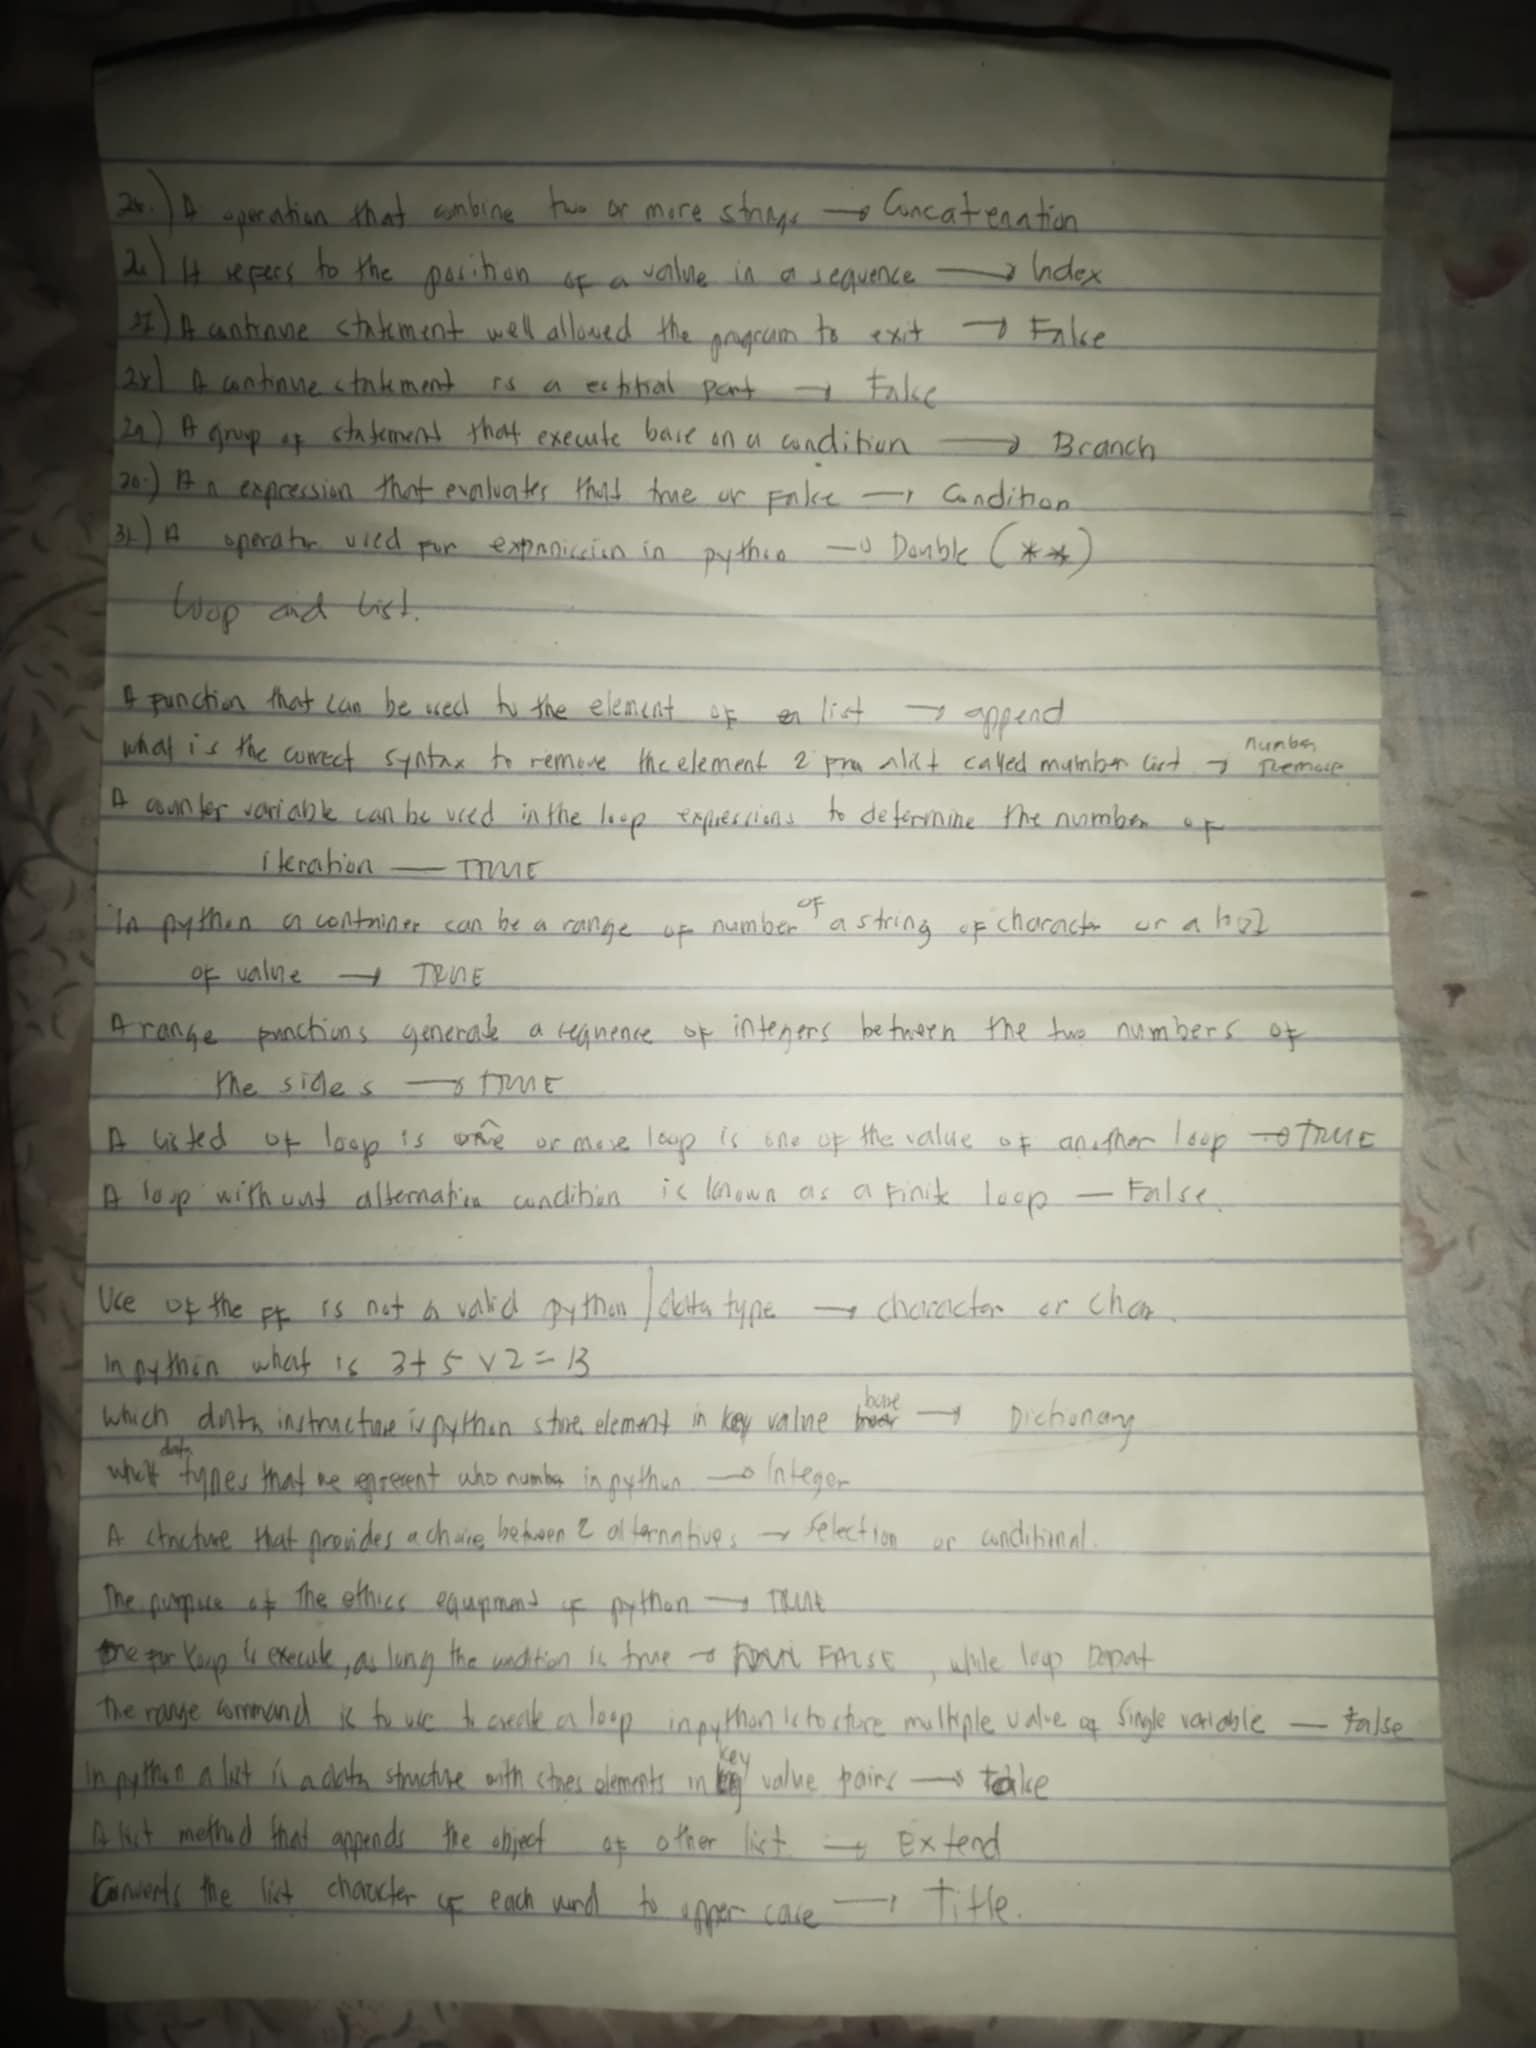 A operation that combine two or more strings → Concatenation
It refers to the position of a value in a sequence → Index
A continue statement well allowed the program to exit → False
A continue statement is a part → False
29) A group of statement that execute base on a condition → Branch
30.) An expression that evaluates that true or False → Condition
31) A operator used for in python → Double (**)
Loop and List.
A function that can be used to the element of list → append
what is the correct syntax to remove the element 2 called list → number Remove
A counter variable can be used in the loop expressions to determine the number of
iteration — TRUE
In python a container can be a range of number of a string of character or a list
of value → TRUE
A range functions generate a sequence of integers between the two numbers of
the sides → TRUE
A listed of loop is one or more loop is one of the value of another loop → TRUE
A loop without alternation condition is known as a finite loop — False.
Use of the FF is not a valid python / data type → character or char.
In python what is 3 + 5 x 2 = 13
which data instructure is python store element in key value base → Dictionary
what data types that represent who number in python → Integer
A structure that provides a choice between 2 alternatives → Selection or conditional.
The purpose of the ethics equipment of python → TRUE
for loop is execute, as long the condition is true → FALSE, while loop
The range command is to use to create a loop in python is to store multiple value of single variable — False
In python a list is a data structure with stores elements in key value pairs →
A list method that appends the object of other list → Extend
Converts the list character of each word to upper case → Title.